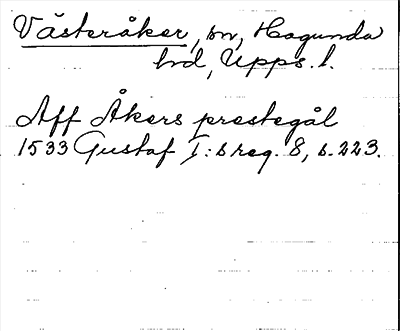 Västeråker, sn, Hagunda
hd, Upps. l.
Aff Åkers prestegål
1533 Gustaf I:s reg. 8, s. 223.